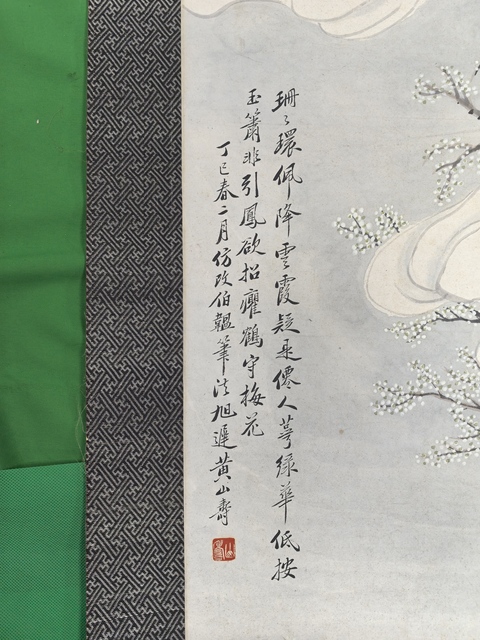 珊〻環佩降雲霞疑是僊人萼綠華低按
玉簫非引鳳欲招癯鶴守梅花
丁巳春二月仿改伯韞筆法旭遲黃山壽